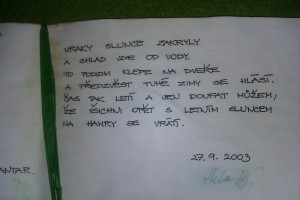 MRAKY SLUNCE ZAKRYLY
A CHLAD JDE OD VODY.
TO PODZIM KLEPE NA DVEŘE
A PŘEDZVĚST TUHÉ ZIMY SE HLÁSÍ.
ČAS TAK LETÍ A JEN DOUFAT MŮŽEM,
ŽE VŠICHNI OPĚT S LETNÍM SLUNCEM
NA HAMRY SE VRÁTÍ.
ANTAR.
27.9.2003